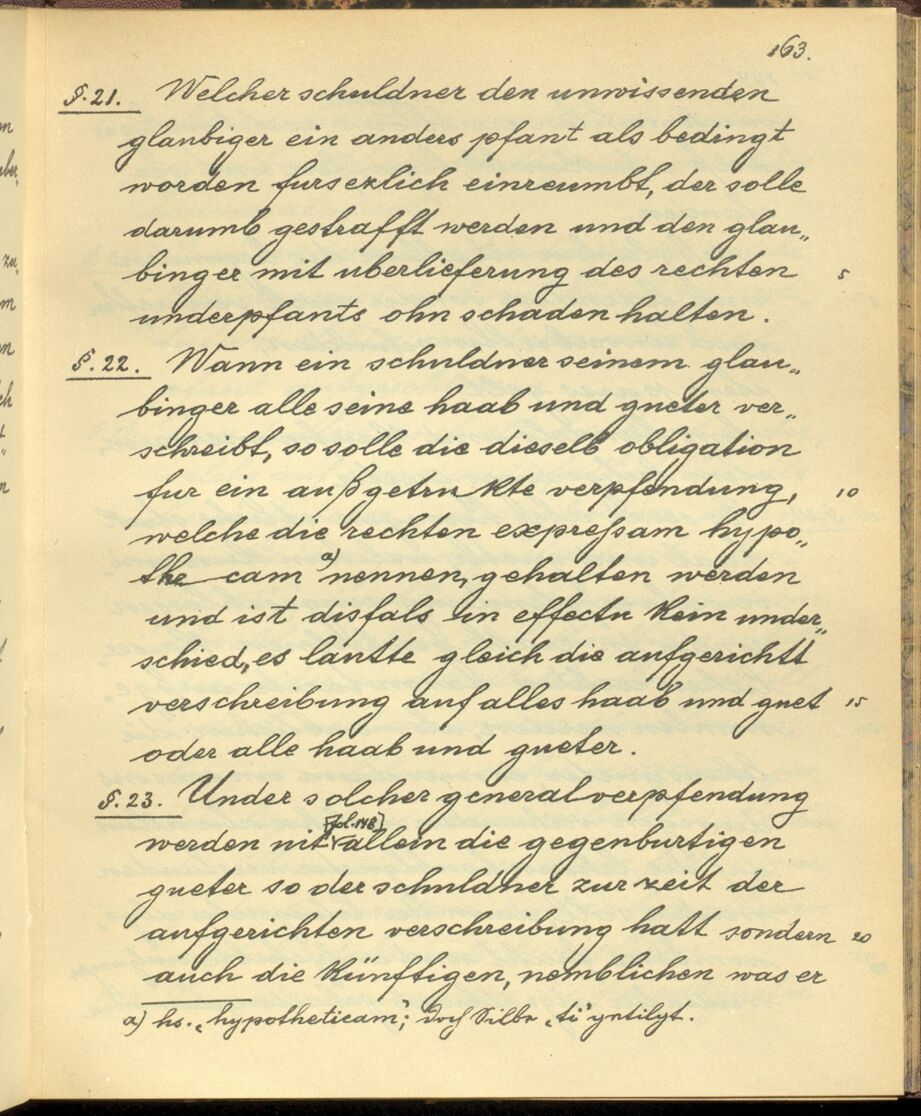 163.
§. 21. Welcher schuldner den unwissenden
glaubiger ein anders pfant als bedingt
worden fursezlich einreumbt, der solle
darumb gestrafft werden und den glau„
binger mit uberlieferung des rechten 5
underpfants ohn schaden halten.
§. 22. Wann ein schuldner seinem glau„
binger alle seine haab und gueter ver„
schreibt, so solle die dieselb obligation
fur ein außgetrukte verpfendung, 10
welche die rechten expressam hypo„
the cam a) nennen, gehalten werden
und ist disfals in effectu kein under„
schied, es lautte gleich die aufgerichtt
verschreibung auf alles haab und guet 15
oder alle haab und gueter.
§. 23. Under solcher generalverpfendung
werden nit [fol. 148] allein die gegenburtigen
gueter so der schuldner zur zeit der
aufgerichten verschreibung hatt sondern 20
auch die künftigen, nemblichen was er
a) hs. „hypotheticam"; doch Silbe „ti" getilgt.